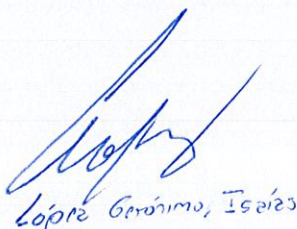 López Gerónimo, Isaías